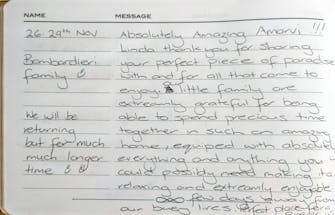 NAME
MESSAGE
26-29th Nov
Bombardieri
family
We will be
returning
but for much
much longer
time
Absolutely Amazing Amarvi !!!
Linda thank you for sharing
your perfect piece of paradise
with and for all that come to
enjoy. little family are
extreamly grateful for being
able to spend precious time
together in such an amazing
home, equiped with absolutely
everything and anything you
could possibly need making it
relaxing and extreamly enjoyable
few days away from
our busy lives perfect place for a